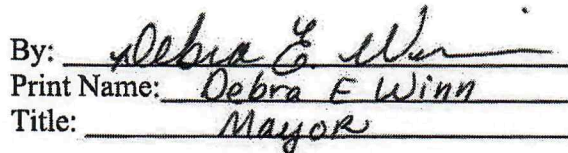 By: Debra E. Winn
Print Name: Debra E Winn
Title: Mayor